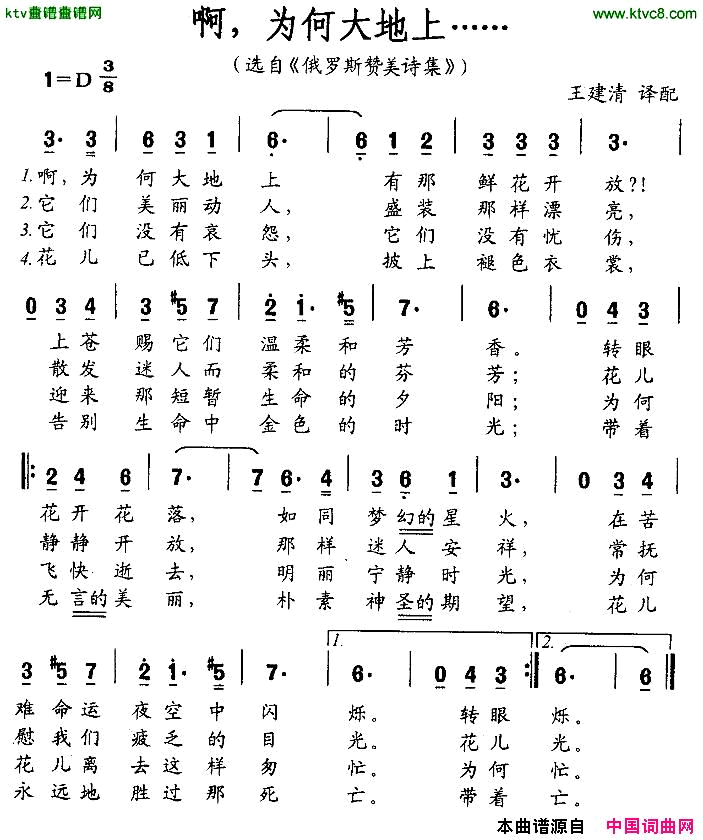 ktv壹谱壹谱网
www.ktvc8.com
啊，为何大地上……
（选自《俄罗斯赞美诗集》）
1=D 3/8
王建清 译配
3· 3 6 3 1 6· 6 1 2 3 3 3 3·
1.啊，为 何大地 上 有那 鲜花开 放?!
2.它们 美丽动 人， 盛装 那样漂 亮，
3.它们 没有哀 怨， 它们 没有忧 伤，
4.花儿 已低下 头， 披上 褪色衣 裳，
0 3 4 3 #5 7 2 1· #5 7· 6· 0 4 3
上苍 赐它们 温柔和 芳 香。 转眼
散发 迷人而 柔和的 芬 芳； 花儿
迎来 那短暂 生命的 夕 阳； 为何
告别 生命中 金色的 时 光； 带着
2 4 6 7· 7 6· 4 3 6 1 3· 0 3 4
花开花 落， 如同 梦幻的星 火， 在苦
静静开 放， 那样 迷人安 祥， 常抚
飞快逝 去， 明丽 宁静时 光， 为何
无言的美 丽， 朴素 神圣的期 望， 花儿
1. 2.
3 #5 7 2 1· #5 7· 6· 0 4 3 6· 6
难命运 夜空中 闪 烁。 转眼 烁。
慰我们 疲乏的 目 光。 花儿 光。
花儿离 去这样 匆 忙。 为何 忙。
永远地 胜过那 死 亡。 带着 亡。
本曲谱源自 中国词曲网